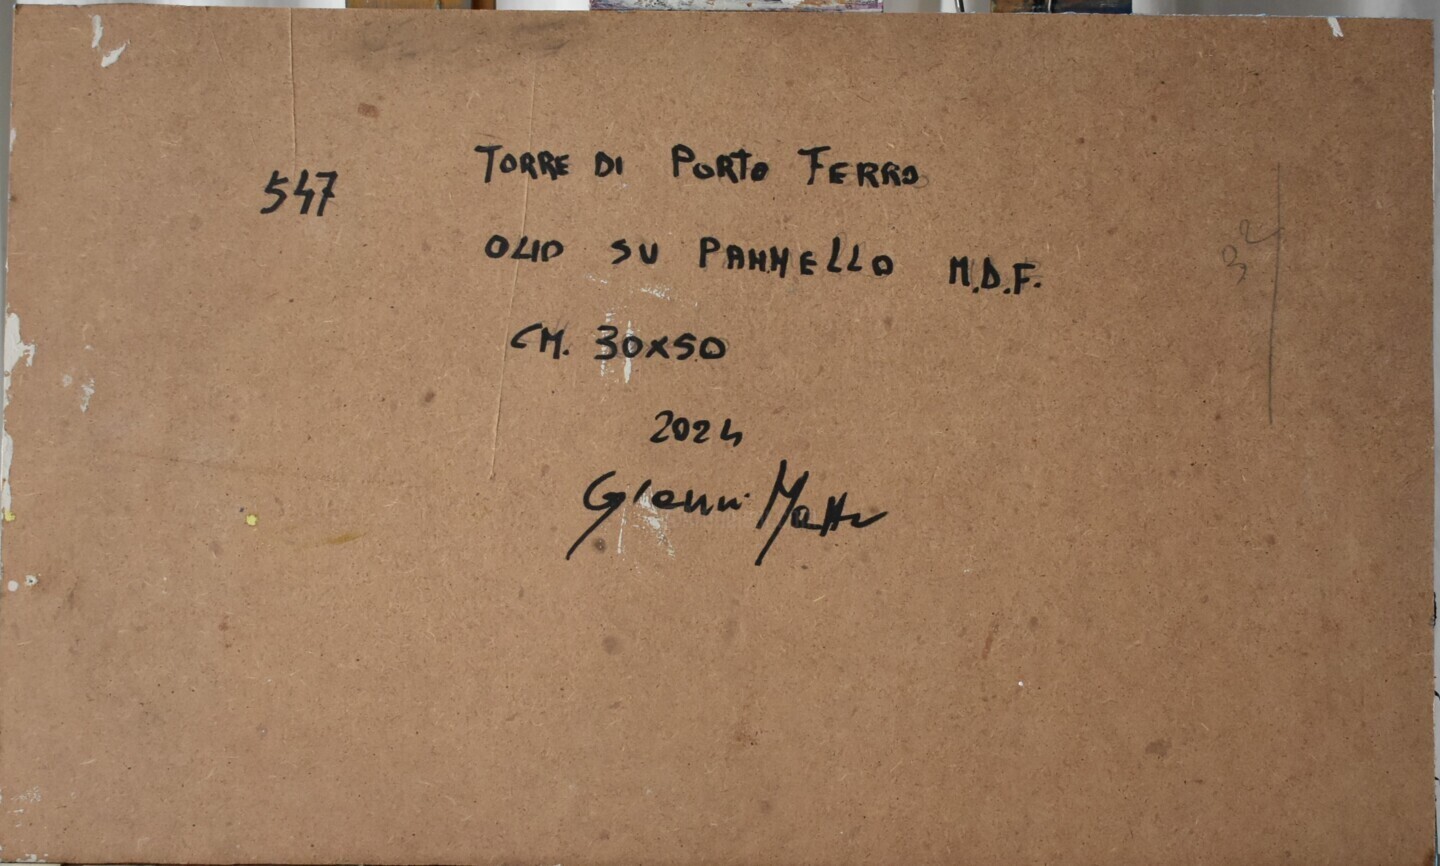 547
TORRE DI PORTO FERRO
OLIO SU PANNELLO M.D.F.
CM. 30x50
2024
32